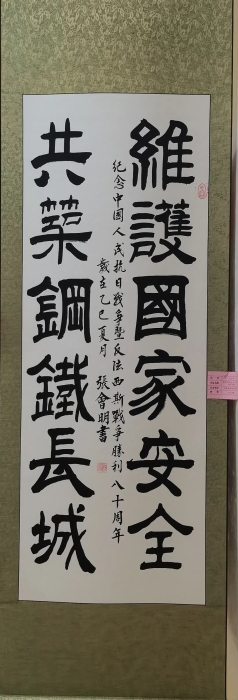 維護國家安全
共築鋼鐵長城
紀念中國人民抗日戰爭暨反法西斯戰爭勝利八十周年
歲在乙巳夏月 張會明書